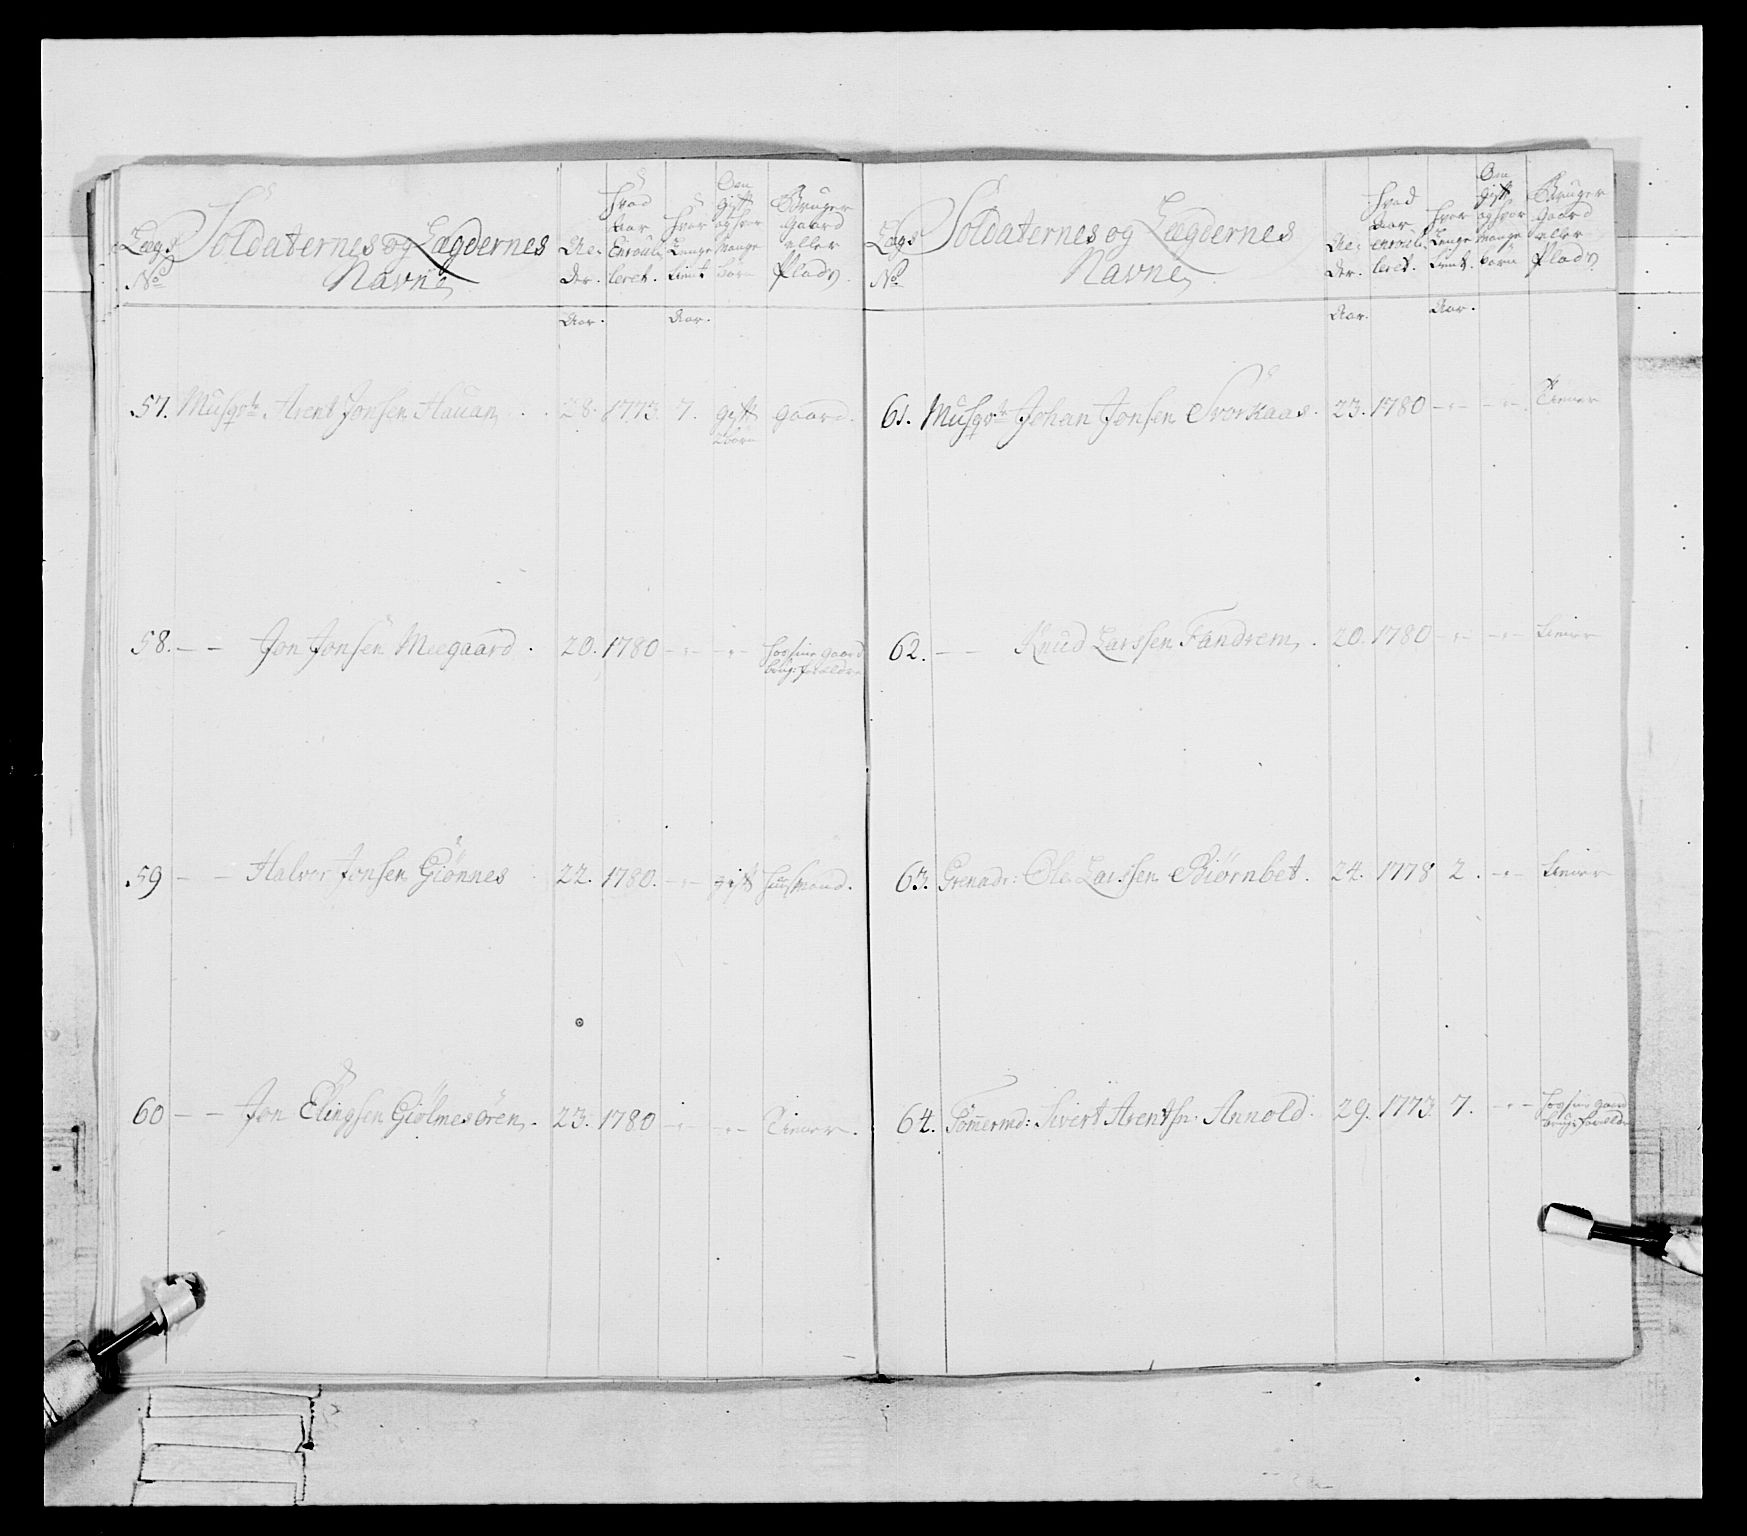 Lægs No Soldaternes og Lægdernes Navne Al-der. Hvad Aar Enroulleret. Hvor Længe tient Om gift og hvor mange Børn Bruger Gaard eller Plads
Aar. Aar.
57. Musqvtr Arent Jonsen Hauan 28. 1773. 7. gift gaard.
2 børn
58. — — Jon Jonsen Meegaard. 20. 1780 -"- -"- hos sine gaard
brug: forældre
59 — — Halvor Jonsen Giønnes 22. 1780. -"- gift Huusmand.
60 — — Jon Elingsen Giølmesøren. 23. 1780 -"- -"- Tiener.
Lægs No Soldaternes og Lægdernes Navne Al-der. Hvad Aar enroulleret. Hvor Længe tient. Om gift og hvor mange børn Bruger Gaard eller Plads
Aar. Aar.
61. Musqvtr Johan Jonsen Svorkaas. 23. 1780 -"- -"- Tiener
62. — — Knud Larssen Fandrem. 20. 1780 -"- -"- tiener
63. Grenadr: Ole Larssen Biørnbet. 24. 1778 2. -"- tiener
64. Tømermd: Sivert Arentsn. Arnold. 29. 1773. 7. -"- hos sine gaard
brug: forældre